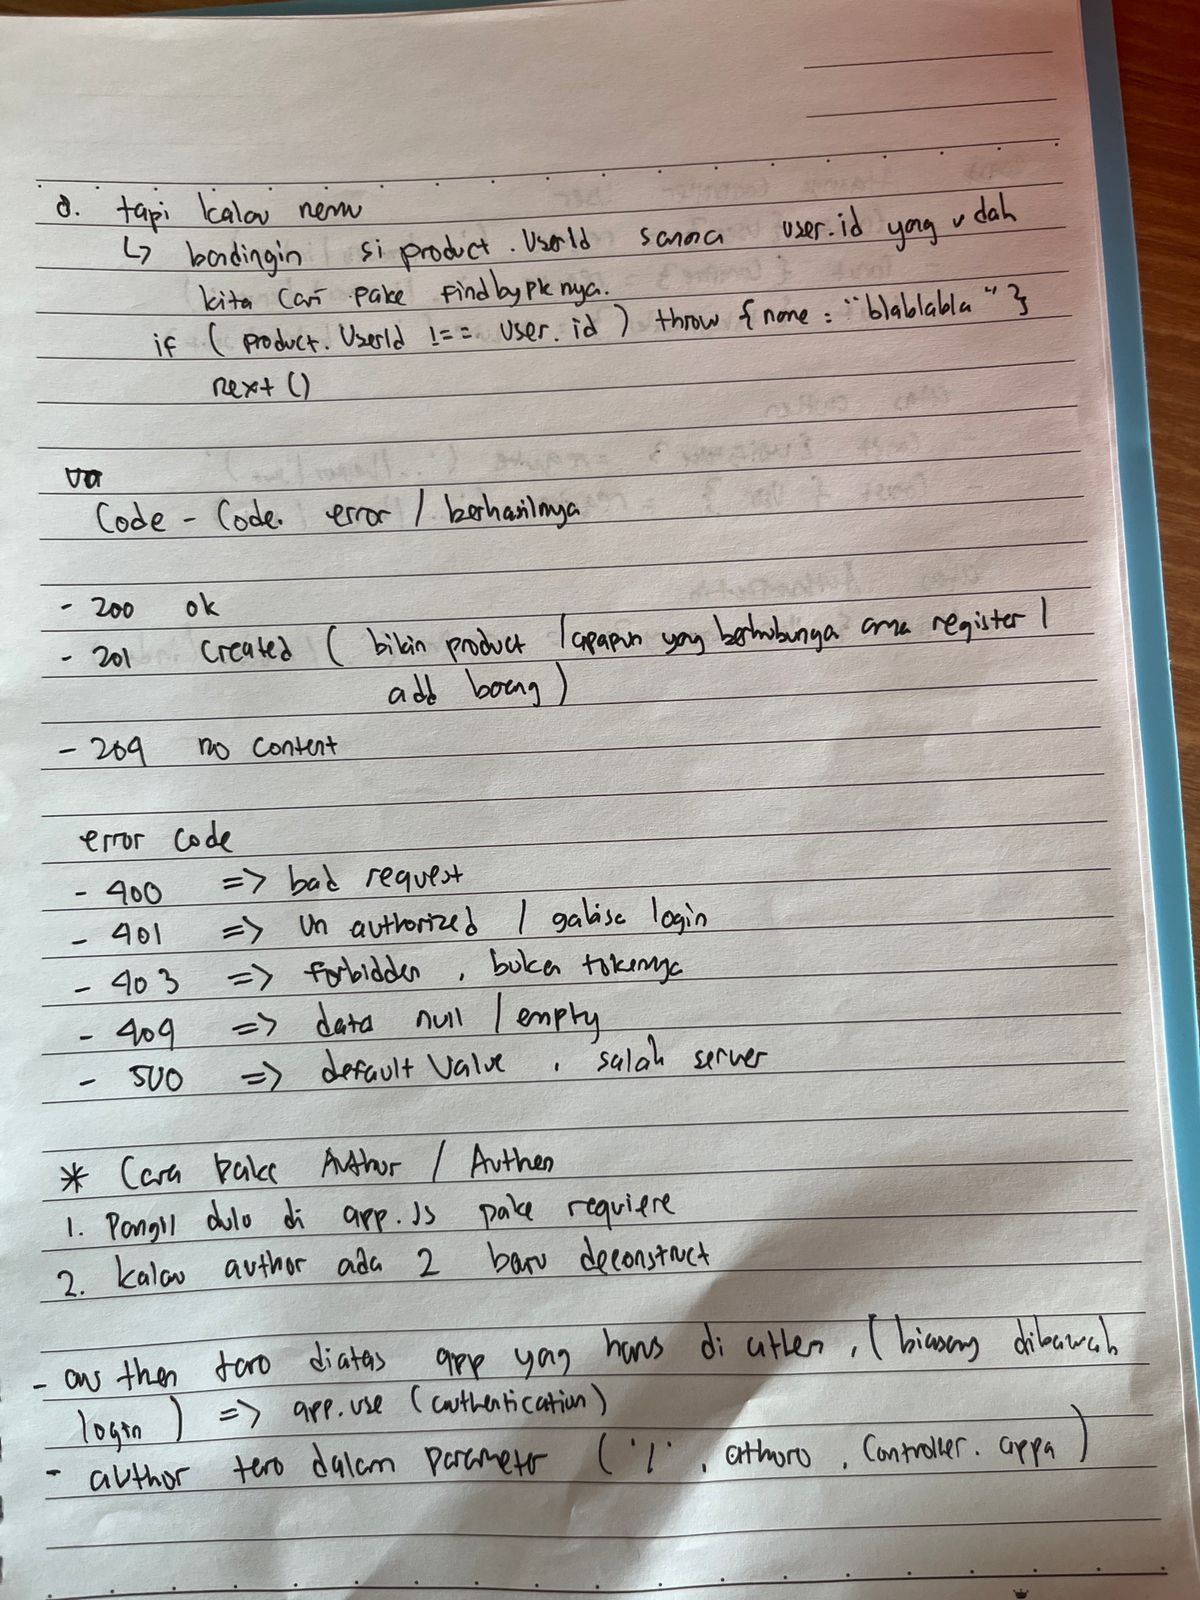 8. tapi kalau nemu
↳ bandingin si product.UserId sama user.id yang udah
kita cari pake findbypk nya.
if (product.UserId !== user.id) throw {name: "blablabla"}
next()
Code - Code error / berhasilnya
- 200 ok
- 201 Created ( bikin product / apapun yang berhubunga ama register /
add barang )
- 204 no content
error code
- 400 => bad request
- 401 => un authorized / gabisa login
- 403 => forbidden , buka tokennya
- 404 => data null / empty
- 500 => default value , salah server
* Cara pake Author / Authen
1. Panggil dulu di app.js pake requiere
2. kalau author ada 2 baru deconstruct
- authen taro diatas app yag harus di authen , ( biasany dibawah
login ) => app.use (authentication)
- author taro dalam parameter ( '/' , athoro , Controller. appa )